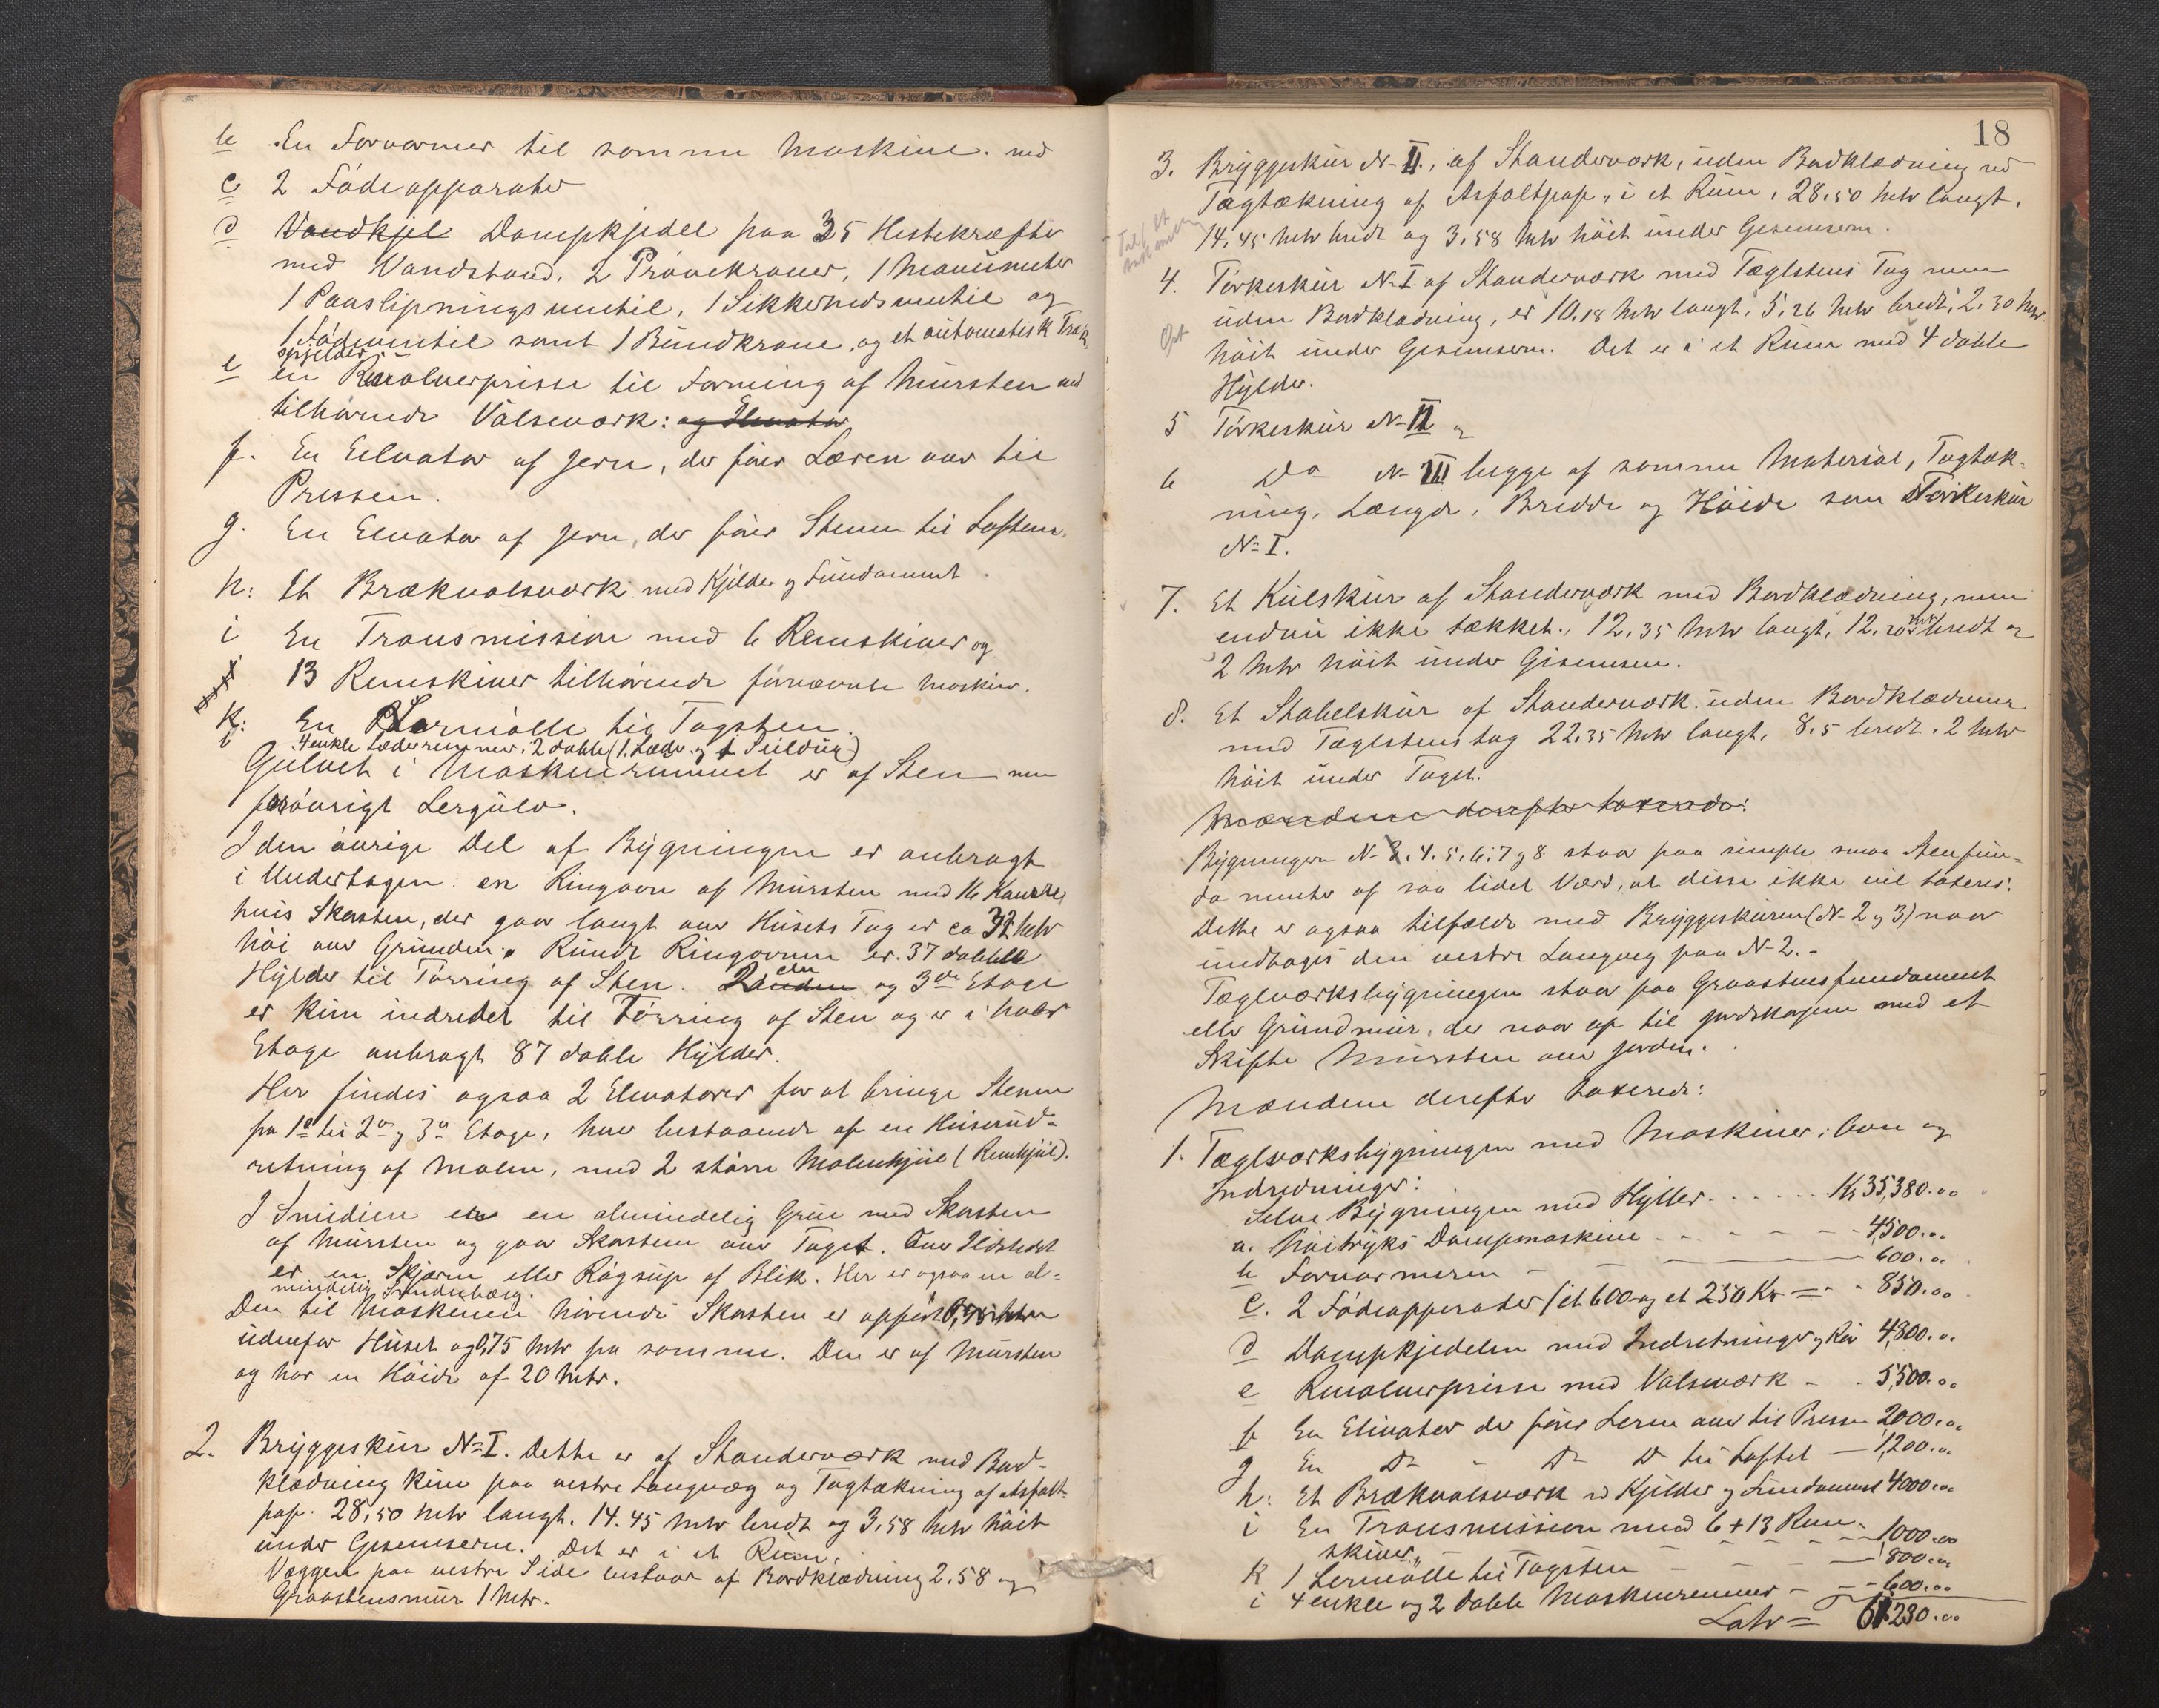 b En Forvarmer til samme Maskine. med
c 2 Födeapparater
d Vandkjel Dampkjedel paa 35 Hestekræfter
med Vandstand, 2 Prövekraner, 1 Manümeter
1 Paaslipningsventil, 1 Sikkerhedsventil og
1 Födeventil samt 1 Bündkrane, og et aütomatisk Træk-
spjelder
e en Revolverpresse til Forming af Mürsten med
tilhörende Valseværk: og Elevator
f. En Eelvator af Jern, der förer Læren over til
Pressen.
g. En Elevator af Jern, der förer Stenen til Loftem.
h: Et Brækvalseværk med Kjelder og Fündament.
i En Transmission med 6 Remskiver og
13 Remskiver tilhörende fornævnte Maskiner.
K: En Lermölle til Tagsten.
i 4 enkle Læderremmer, 2 doble (1. Læder og 1 Seildüg)
Gülvet i Maskinrummet er af Sten men
forövrigt Lergülv.
I den övrige Del af Bygningen er anbragt
i Underetagen: en Ringovn af Mürsten med 16 Kamre,
hvis Skorsten, der gaar langt over Hüsets Tag er ca 32 Mtr
höi over Gründen.Ründt Ringovnen er 37 dobble
Hylder til Törring af Sten. 2den og 3die Etage
er kün indredet til Törring af Sten og er i hver
Etage anbragt 87 doble Hylder.
Her findes ogsaa 2 Elevatorer for at bringe Stenene
fra 1e til 2en og 3e Etage, hver bestaaende af en Heiseind-
retning af Malm, med 2 större Malmhjül (Remhjül).
I Smidien er en almindelig Grüe med Skorsten
af Mürsten og gaar Skorstenen over Taget. Over Ildstedet
er en Skjærm eller Rögsup af Blik. Her er ogsaa en al-
mindelig Smidebælg.
Den til Maskinen hörende Skorsten er opfört
üdenfor Hüset og 0,75 Mtr fra samme. Den er af Mürsten
og har en Höide af 20 Mtr.
2. Bryggeskür No I. Dette er af Standerværk med Bord-
klædning kün paa vestre Langvæg og Tagtækning af Asfalt-
pap. 28,50 Mtr langt. 14.45 Mtr bredt og 3,58 Mtr höit
ünder Gesemserne. Det er i et Rüm.
Væggen paa vestre Side bestaar af Bordklædning 2.58 og
Graastensmür 1 Mtr.
18
3. Bryggeskür No II., af Standerværk, üden Bordklædning med
Tagtækning af Asfaltpap, i et Rüm, 28.50 Mtr langt,
14,45 Mtr bredt og 3,58 Mtr höit ünder Gesemserne.
4. Törkeskür No I af Standerværk med Tæglstens Tag men
üden Bordklædning, er 10.18 Mtr langt, 5,26 Mtr bredt, 2.30 Mtr
höit ünder Gesemserne. Det er i et Rüm med 4 doble
Hylder.
5 Törkeskür No II og
6 Do No III begge af samme Material, Tagtæk-
ning, Længde, Bredde og Höide som Törkeskür
No I.
7. Et Külskür af Standerværk med Bordklædning, men
endnü ikke tækket., 12,35 Mtr langt, 12,20 Mtr bredt og
2 Mtr höit ünder Gesemsen.
8. Et Stabelskür af Standerværk üden Bordklædning
med Tæglstenstag 22.35 Mtr langt, 8.5 bredt. 2 Mtr
höit ünder Taget.
Mændene derefter taxerede:
Bygningerne No 3. 4. 5. 6. 7 og 8 staar paa simple smaa Stenfün-
damenter af saa lidet Værd, at disse ikke vil taxeres.
Dette er ogsaa tilfælde med Bryggeskürene (No 2 og 3) naar
ündtages den vestre Langveg paa No 2.-
Tæglværksbygningen staar paa Graastensfundament
eller Gründmür, der naar op til Jordskorpen med et
Skifte Mürsten over Jorden.
Mændene derefter taxerede:
1. Tæglværksbygningen med Maskiner, Ovn og
Indredninger:
Selve Bygningen med Hyller. . . . . . Kr 35,380.00
a. Höitryks Dampmaskine - - - - 4,500.00
b Forvarmeren - - 600.00
c. 2 Födeapperater (et 600 og et 250 Kr = - - 850.00
d Dampkjedelen med Indretninger og Rör 4,800.00
e Revolverpresse med Valseværk - - 5,500.00
f En Elevator der förer Leren over til Pressen 2000.00
g En Do - Do Do til Loftet - 1,200.00
h: Et Brækvalseværk med Kjelder og Fundament 4000.00
i En Transmission med 6 + 13 Rem-
skiver " - - - - 1000.00
K 1 Lermölle til Tagsten - - - 800.00
i 4 enkle og 2 doble Maskinremmer - - - 600.00
Latr = 61.230.00